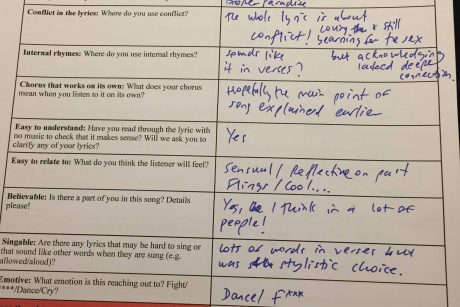 Broken Paradise
Conflict in the lyrics: Where do you use conflict?
The whole lyric is about
conflict! loving & still
yearning for the sex
Internal rhymes: Where do you use internal rhymes?
Sounds like
it in verses?
but acknowledging
lacked deeper
connection.
Chorus that works on its own: What does your chorus
mean when you listen to it on its own?
Hopefully the main point of
song explained earlier
Easy to understand: Have you read through the lyric with
no music to check that it makes sense? Will we ask you to
clarify any of your lyrics?
Yes
Easy to relate to: What do you think the listener will feel?
Sensual / Reflective on past
Flings / Cool....
Believable: Is there a part of you in this song? Details
please!
Yes, I think in a lot of
people!
Singable: Are there any lyrics that may be hard to sing or
that sound like other words when they are sung (e.g.
allowed/aloud)?
Lots of words in verses but
was stylistic choice.
Emotive: What emotion is this reaching out to? Fight/
F***/Dance/Cry?
Dance/ F***